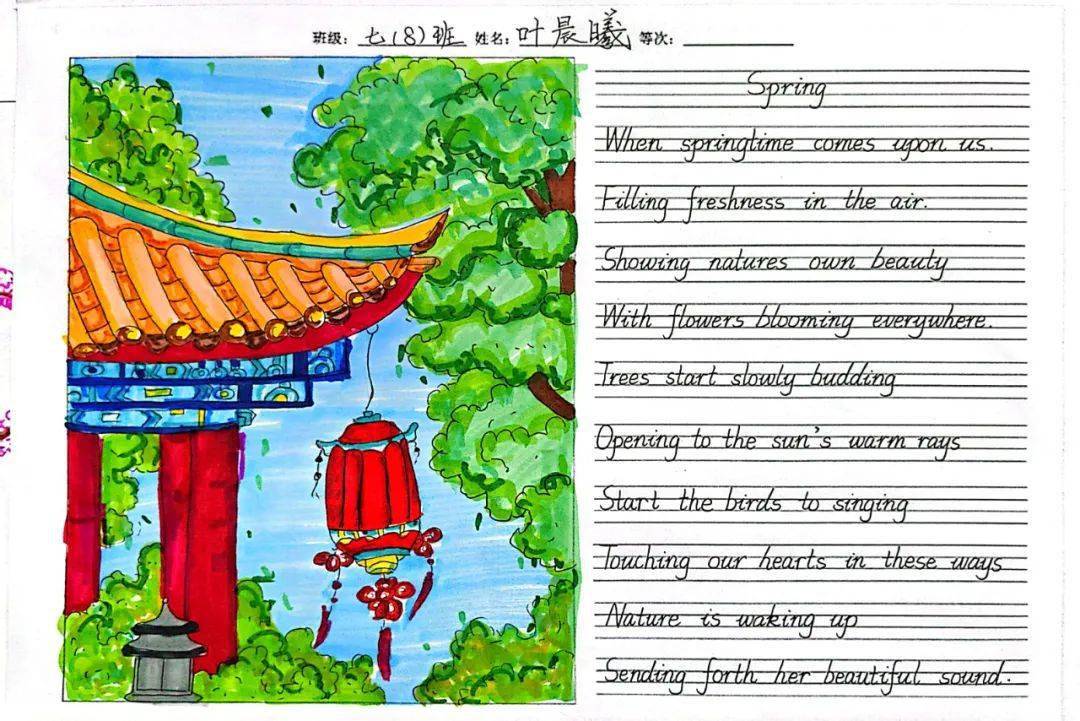 班级：七(8)班 姓名：叶晨曦 等次：
Spring
When springtime comes upon us.
Filling freshness in the air.
Showing natures own beauty
With flowers blooming everywhere.
Trees start slowly budding
Opening to the sun's warm rays
Start the birds to singing
Touching our hearts in these ways
Nature is waking up
Sending forth her beautiful sound.